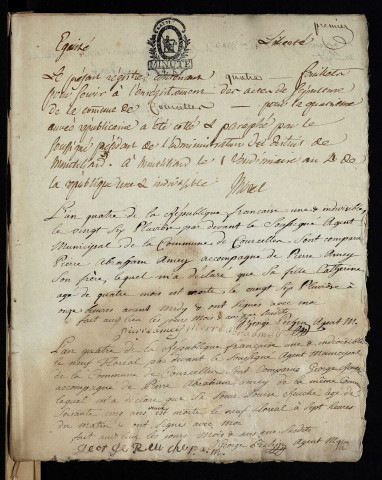 premier
Egalité
Liberté
MINUTE
Le présent registre contenant quatre feuillets
pour servir à l'enregistrement des actes de sépulture
de la commune de Courcelles — pour la quatrieme
année républicaine a été cotté & paraphé par le
soussigné président de l'administration
de
Montbéliard. à Montbéliard le 1 Vendémiaire an 4 de
la république une & indivisible.
Morel
L'an quatre de la République francaise une & indivisible,
le vingt sep Pluviose par devant le Soussigné Agent
Municipal de la Commune de Courcelles Sont comparu
Pierre Abraham Amey accompagné de Pierre Amey
Son frère, lequel m'a déclaré que sa fille Catherine
age de quatre mois est morte le vingt sep Pluviose à
onze heures avant midy & ont signés avec moi
fait audit lieu les jours Mois & an que Susdits
pierre amey
George Agent M.
L'an quatre de la République française une & indivisible
le neuf Floréal par devant le Soussigné Agent Municipal
de la Commune de Courcelles Sont Comparus George
accompagné de Pierre Abraham amey de la même Comm
lequel m'a déclaré que Sa Louise age de
Soixante cinq ans est morte le neuf floreal a Sept heures
du matin & ont signé avec moi
fait audit lieu les jours Mois & an que Susdits
George Agent Mpal